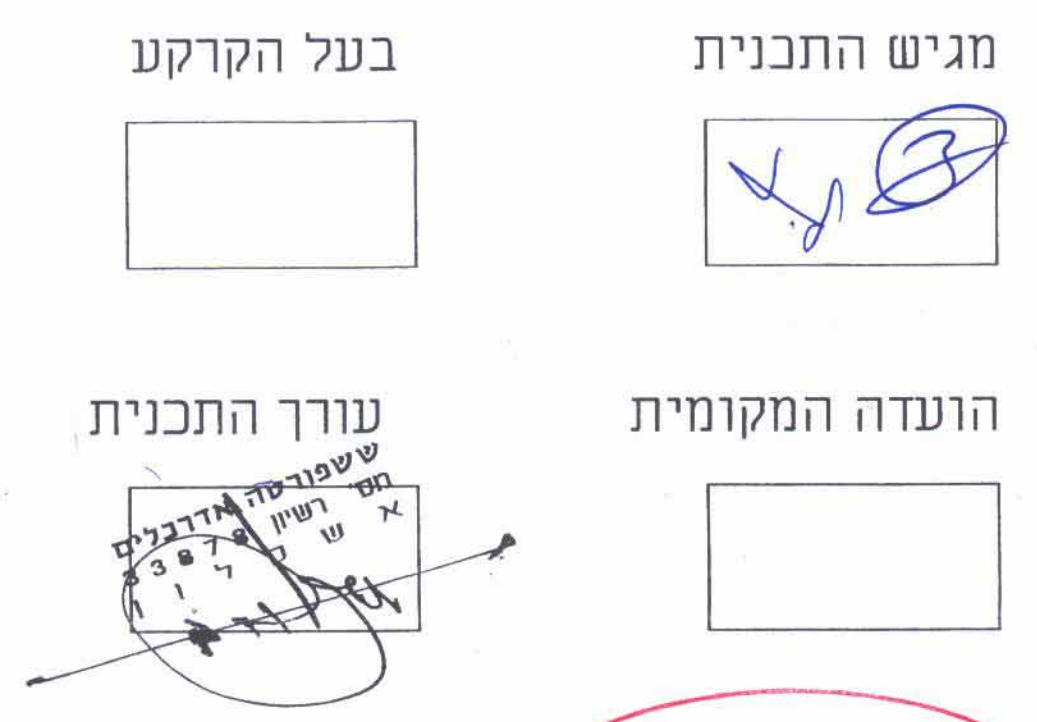 מגיש התכנית
בעל הקרקע
הועדה המקומית
עורך התכנית
ששפורטה אדרכלים
מס' רשיון 33878